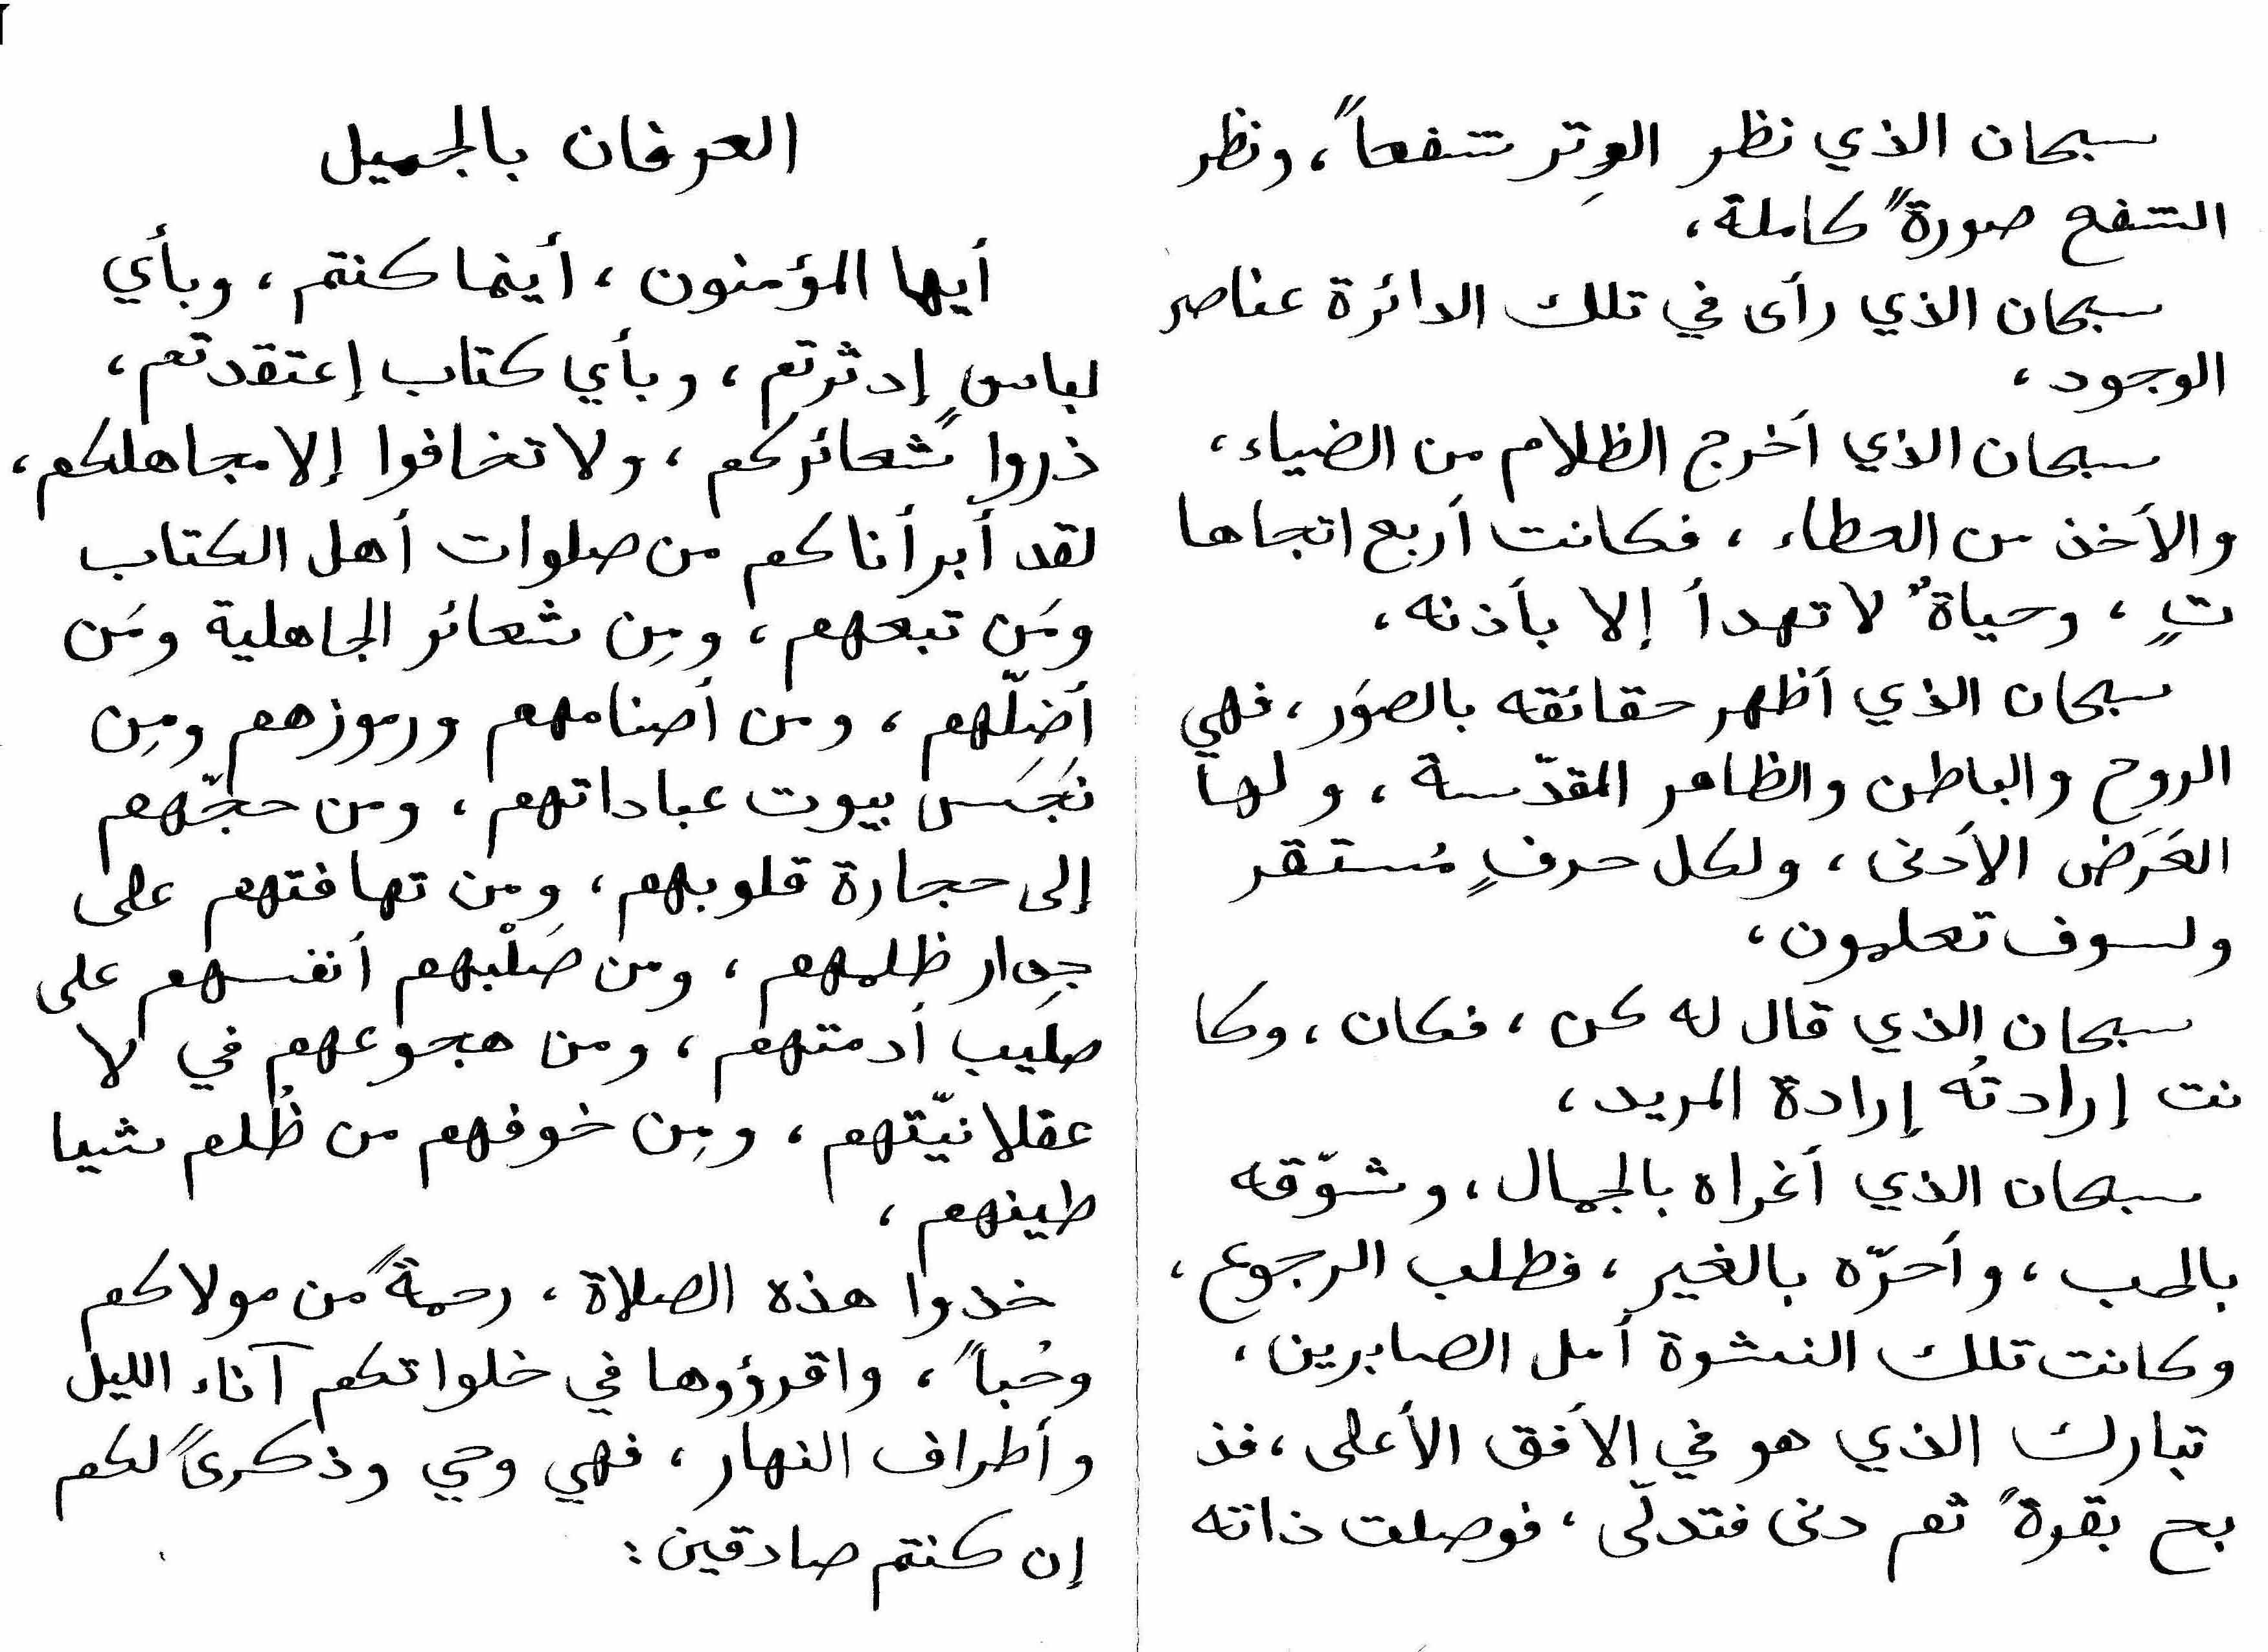 سبحان الذي نظر الوِتر شفعاً، ونظر
الشفع صورةً كاملة،
سبحان الذي رأى في تلك الدائرة عناصر
الوجود،
سبحان الذي أخرج الظلام من الضياء،
والأخذ من العطاء، فكانت أربع اتجاها
تٍ، وحياةٌ لا تهدأ إلا بأذنه،
سبحان الذي أظهر حقائقه بالصوَر، فهي
الروح والباطن والظاهر المقدّسة، ولها
العَرَض الأدنى، ولكل حرفٍ مُستقر
ولسوف تعلمون،
سبحان الذي قال له كن، فكان، وكا
نت إرادتُه إرادة المريد،
سبحان الذي أغراه بالجمال، وشوّقه
بالحب، وأحرّه بالغير، فطلب الرجوع،
وكانت تلك النشوة أمل الصابرين،
تبارك الذي هو في الأفق الأعلى، فذ
بح بقرةً ثم دنى فتدلّى، فوصلت ذاته
العرفان بالجميل
أيها المؤمنون، أينما كنتم، وبأي
لباسٍ إدثرتم، وبأي كتاب إعتقدتم،
ذروا شعائركم، ولا تخافوا إلا مجاهلكم،
لقد أبرأناكم من صلوات أهل الكتاب
ومَن تبعهم، ومِن شعائر الجاهلية ومَن
أضِلّهم، ومن أصنامهم ورموزهم ومِن
نَجَس بيوت عباداتهم، ومن حجّهم
إلى حجارة قلوبهم، ومن تهافتهم على
جِدار ظلمهم، ومن صَلْبهم أنفسهم على
صليب أدمتهم، ومن هجوعهم في لا
عقلانيّتهم، ومِن خوفهم من ظُلم شيا
طينهم،
خدوا هذه الصلاة، رحمةً من مولاكم
وحُباً، واقرؤوها في خلواتكم آناء الليل
وأطراف النهار، فهي وحي وذكرىً لكم
إن كنتم صادقين: